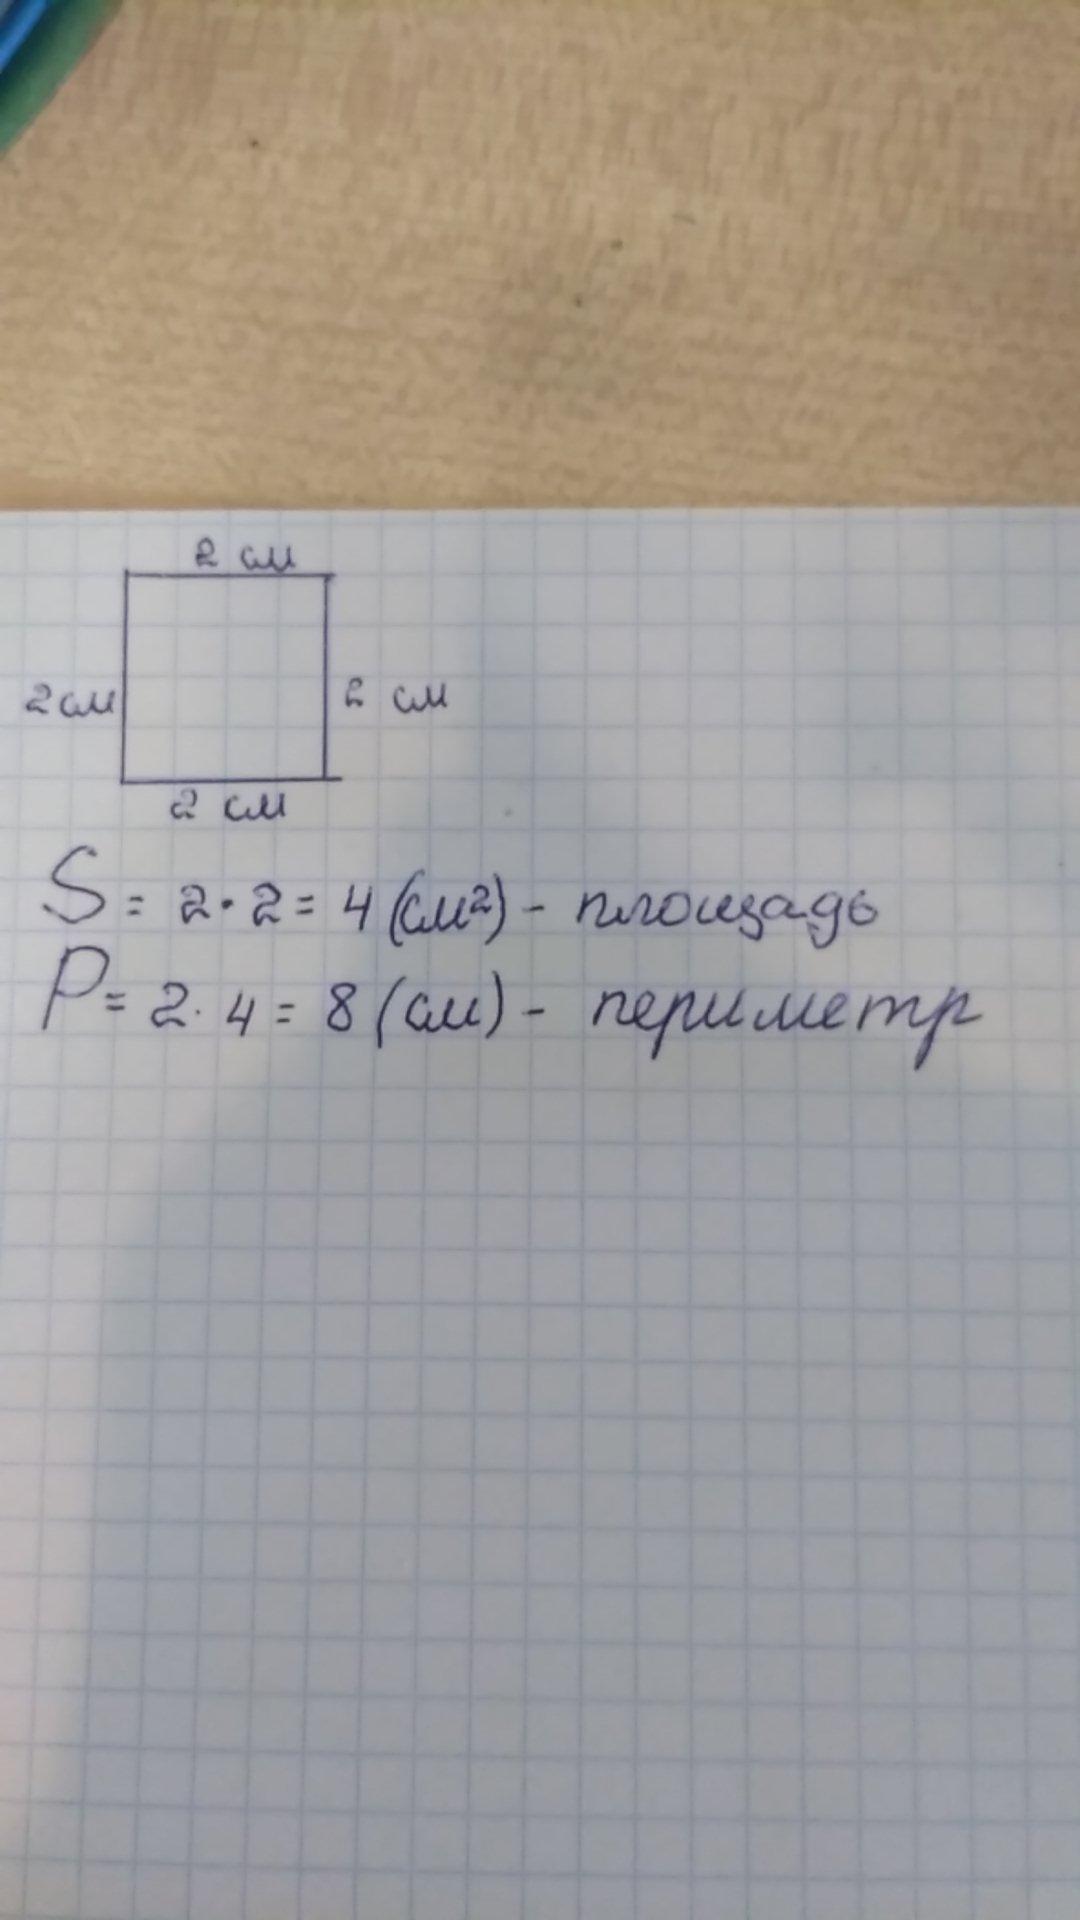 2 см
2 см
2 см
2 см
S = 2 · 2 = 4 (см²) - площадь
P = 2 · 4 = 8 (см) - периметр